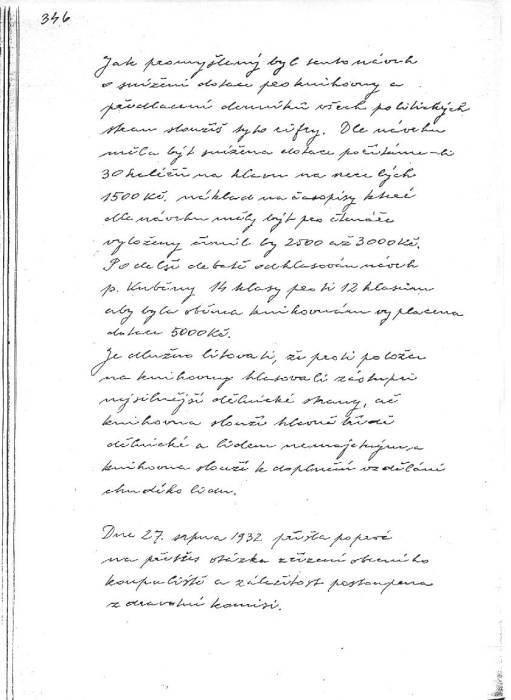 346
Jak promyšlený byl tento návrh
o snížení dotace pro knihovny a
předlacení denníků všech politických
stran slouží tyto cifry. Dle návrhu
měla být snížena dotace počítáme-li
30 haléřů na hlavu na necelých
1500 Kč, náklad na časopisy které
dle návrhu měly být pro čtenáře
vyloženy činil by 2500 až 3000 Kč.
Po delší debatě odhlasován návrh
p. Kuběny 14 hlasy proti 12 hlasům
aby byla oběma knihovnám vyplacena
dotace 5000 Kč.
Je dlužno litovati, že proti položce
na knihovny hlasovali zástupci
nejsilnější dělnické strany, ač
knihovna slouží hlavně třídě
dělnické a lidem nemajetným a
knihovna slouží k doplnění vzdělání
chudého lidu.
Dne 27. srpna 1932 přišla poprvé
na přetřes otázka zřízení obecního
koupaliště a záležitost postoupena
zdravotní komisi.